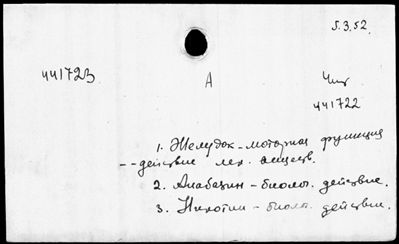 5.3.52.
441723
А
Чит
441722
1. Желудок - моторная функция
-- действие лек. веществ.
2. Анабазин - биолог. действие.
3. Никотин - биолог. действие.